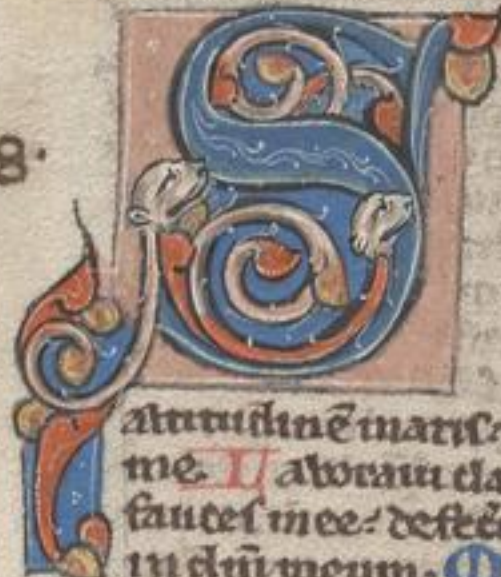 8·
S
altitudinē maris:
me. Laboraui cla
fauces mee: defec
in dm̄ meum. M